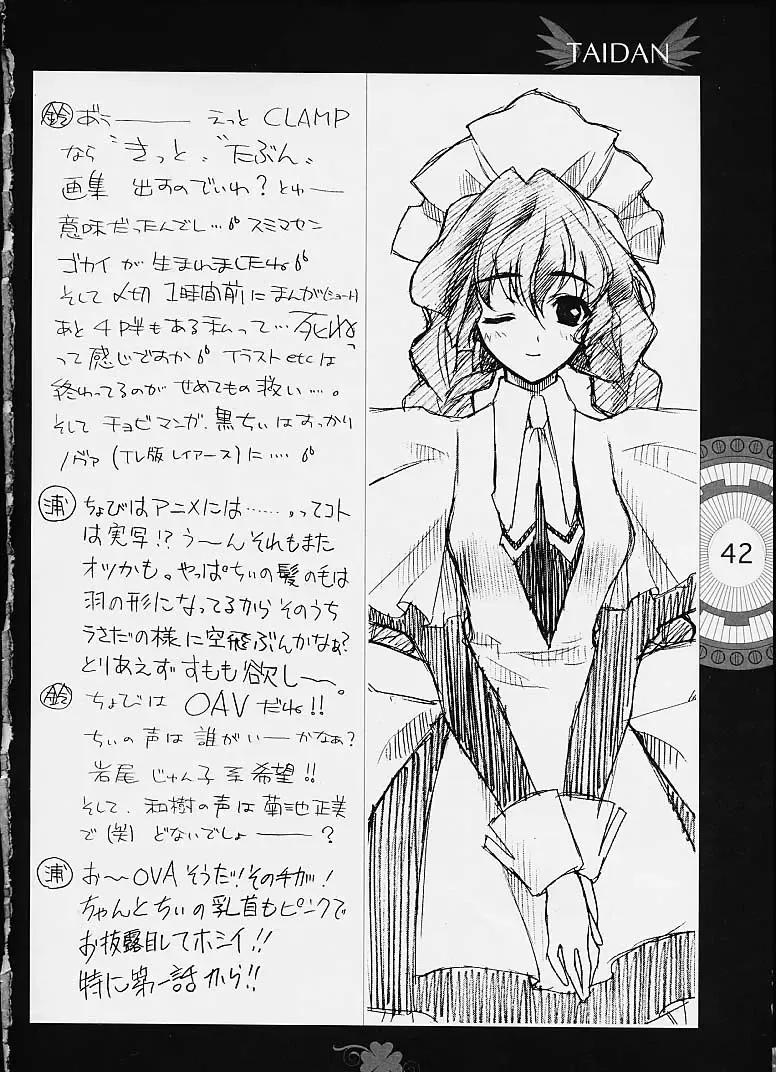 TAIDAN
鈴 あぅ―― えっと CLAMP
なら "きっと、" "たぶん、
画集 出すのでいわ？とゅー
意味だったんでし… スミマセン
ゴカイが 生まれましたね
そして 〆切 1時間前に まんが(ショート)
あと 4P半もある 私って… 死ね
って 感じですか イラスト etc は
終わってるのが せめてもの 救い…。
そして チョビマンガ、黒ちぃは すっかり
ノヴァ (TV版 レイアース) に…
浦 ちょびはアニメには……、ってコト
は実写!? う〜ん それもまた
オツかも。やっぱちぃの髪の毛は
羽の形になってるから そのうち
うさだの様に空飛ぶんかなぁ?
とりあえず すもも欲し〜。
鈴 ちょびは OAV だね!!
ちぃの声は 誰がいーかなぁ?
岩尾 じゅん子 系 希望!!
そして、和樹の声は 菊池正美
で (笑) どないでしょ――?
浦 お〜OVA そうだ! その手が!
ちゃんとちぃの乳首もピンクで
お披露目してホシイ!!
特に第一話から!!
42